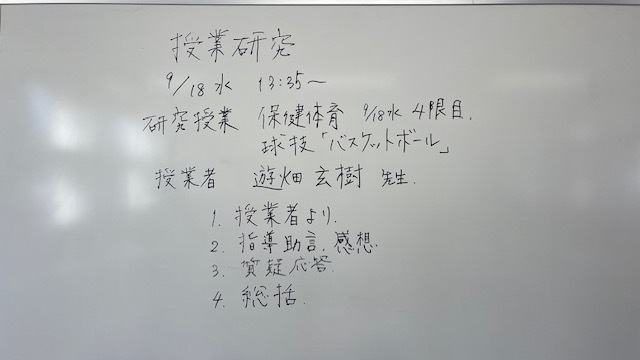 授業研究
9/18水 13:35〜
研究授業 保健体育 9/18水 4限目.
球技「バスケットボール」
授業者 遊畑玄樹 先生.
1. 授業者より.
2. 指導助言、感想.
3. 質疑応答.
4. 総括.